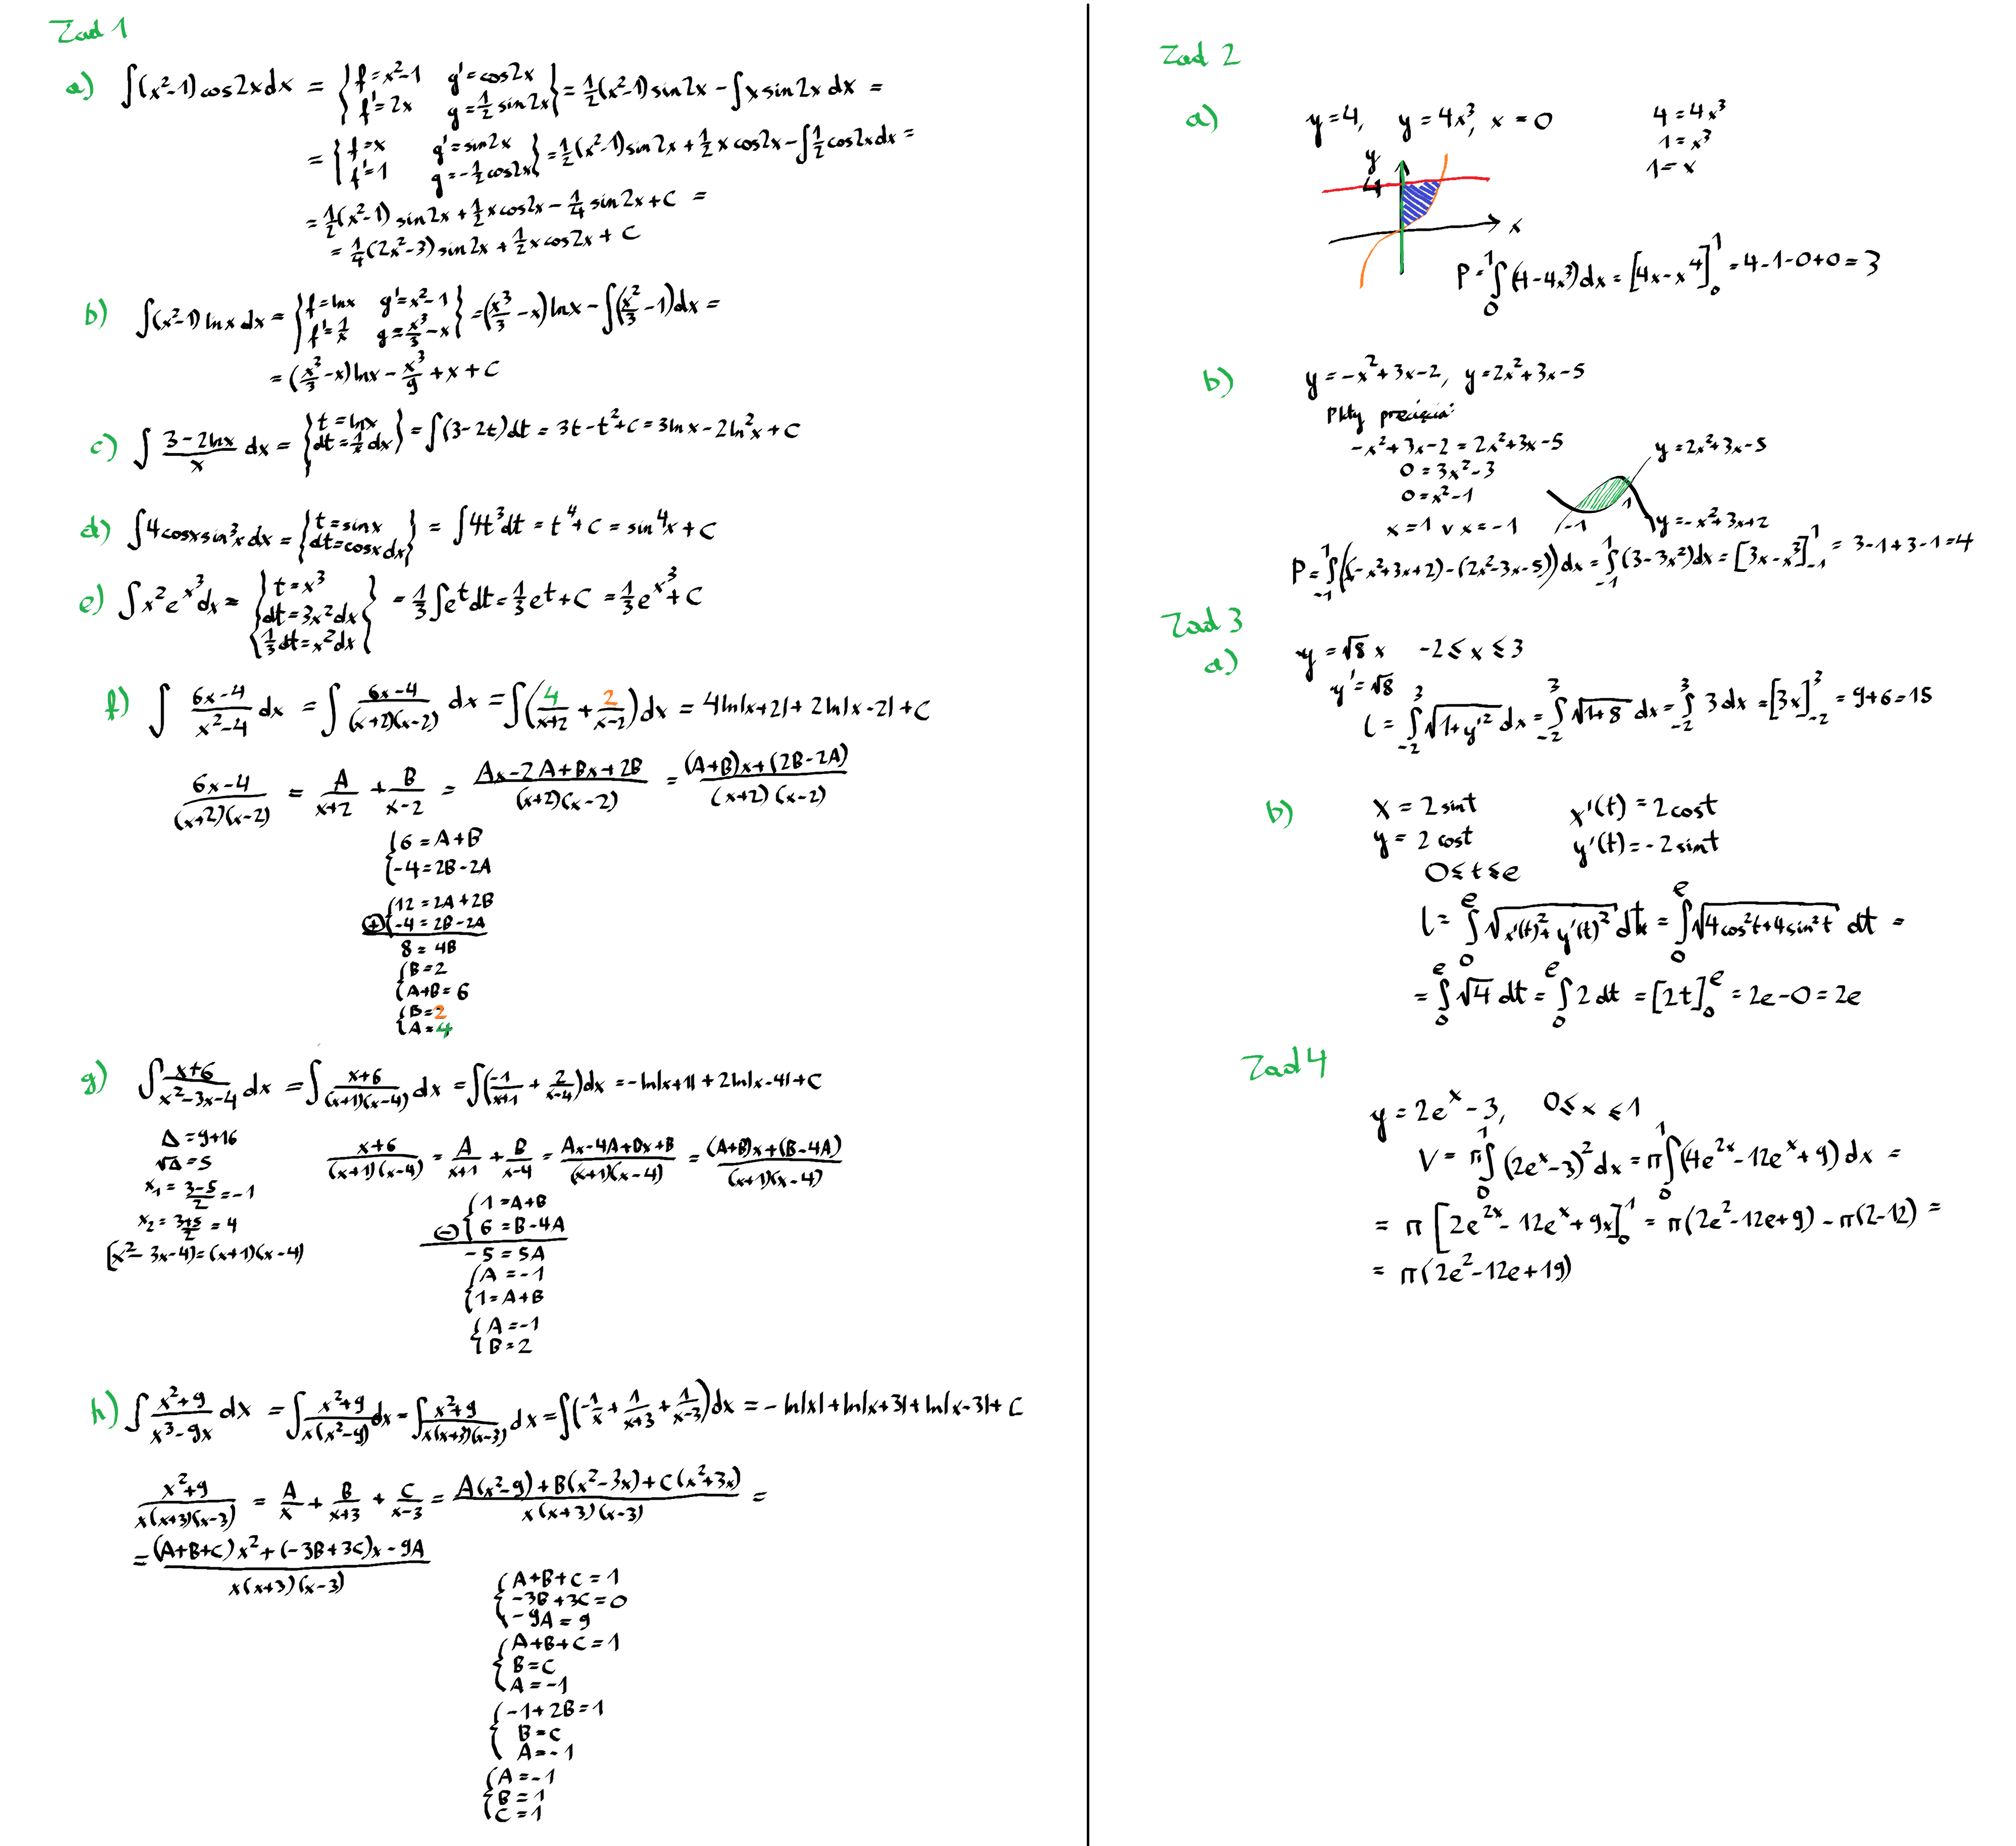 Zad 1
a) ∫(x²-1)cos2xdx = {f=x²-1 g'=cos2x
f'=2x g=½sin2x} = ½(x²-1)sin2x - ∫x sin2x dx =
= {f=x g'=sin2x
f'=1 g=-½cos2x} = ½(x²-1)sin2x + ½x cos2x - ∫½cos2xdx =
= ½(x²-1)sin2x + ½xcos2x - ¼sin2x + C =
= ¼(2x²-3)sin2x + ½xcos2x + C
b) ∫(x²-1)lnxdx = {f=lnx g'=x²-1
f'=1/x g=x³/3-x} = (x³/3-x)lnx - ∫(x²/3-1)dx =
= (x³/3-x)lnx - x³/9 + x + C
c) ∫ (3-2lnx)/x dx = {t=lnx
dt=1/x dx} = ∫(3-2t)dt = 3t-t²+C = 3lnx-2ln²x+C
d) ∫4cosxsin³xdx = {t=sinx
dt=cosxdx} = ∫4t³dt = t⁴+C = sin⁴x+C
e) ∫x²e^x³dx = {t=x³
dt=3x²dx
⅓dt=x²dx} = ⅓∫e^t dt = ⅓e^t+C = ⅓e^x³+C
f) ∫ (6x-4)/(x²-4) dx = ∫ (6x-4)/((x+2)(x-2)) dx = ∫(4/(x+2) + 2/(x-2))dx = 4ln|x+2| + 2ln|x-2| + C
(6x-4)/((x+2)(x-2)) = A/(x+2) + B/(x-2) = (Ax-2A+Bx+2B)/((x+2)(x-2)) = ((A+B)x+(2B-2A))/((x+2)(x-2))
{6=A+B
-4=2B-2A
{12=2A+2B
⊕ {-4=2B-2A
8=4B
{B=2
A+B=6
{B=2
A=4
g) ∫ (x+6)/(x²-3x-4) dx = ∫ (x+6)/((x+1)(x-4)) dx = ∫(-1/(x+1) + 2/(x-4))dx = -ln|x+1| + 2ln|x-4| + C
Δ=9+16
√Δ=5
x₁=(3-5)/2=-1
x₂=(3+5)/2=4
(x²-3x-4)=(x+1)(x-4)
(x+6)/((x+1)(x-4)) = A/(x+1) + B/(x-4) = (Ax-4A+Bx+B)/((x+1)(x-4)) = ((A+B)x+(B-4A))/((x+1)(x-4))
{1=A+B
⊖ {6=B-4A
-5=5A
{A=-1
1=A+B
{A=-1
B=2
h) ∫ (x²+9)/(x³-9x) dx = ∫ (x²+9)/(x(x²-9)) dx = ∫ (x²+9)/(x(x+3)(x-3)) dx = ∫(-1/x + 1/(x+3) + 1/(x-3))dx = -ln|x| + ln|x+3| + ln|x-3| + C
(x²+9)/(x(x+3)(x-3)) = A/x + B/(x+3) + C/(x-3) = (A(x²-9)+B(x²-3x)+C(x²+3x))/(x(x+3)(x-3)) =
= ((A+B+C)x²+(-3B+3C)x-9A)/(x(x+3)(x-3))
{A+B+C=1
-3B+3C=0
-9A=9
{A+B+C=1
B=C
A=-1
{-1+2B=1
B=C
A=-1
{A=-1
B=1
C=1
Zad 2
a) y=4, y=4x³, x=0
4=4x³
1=x³
1=x
y
4
x
P=∫₀¹(4-4x³)dx = [4x-x⁴]₀¹ = 4-1-0+0=3
b) y=-x²+3x-2, y=2x²+3x-5
Pkty przecięcia:
-x²+3x-2=2x²+3x-5
0=3x²-3
0=x²-1
x=1 ∨ x=-1
y=2x²+3x-5
-1
1
y=-x²+3x+2
P=∫₋₁¹((-x²+3x+2)-(2x²-3x-5))dx = ∫₋₁¹(3-3x²)dx = [3x-x³]₋₁¹ = 3-1+3-1=4
Zad 3
a) y=√8 x -2≤x≤3
y'=√8
l=∫₋₂³√(1+y'²)dx = ∫₋₂³√(1+8) dx = ∫₋₂³ 3dx = [3x]₋₂³ = 9+6=15
b) x=2sint x'(t)=2cost
y=2cost y'(t)=-2sint
0≤t≤e
l=∫₀ᵉ√(x'(t)²+y'(t)²) dt = ∫₀ᵉ√(4cos²t+4sin²t) dt =
= ∫₀ᵉ√4 dt = ∫₀ᵉ 2dt = [2t]₀ᵉ = 2e-0=2e
Zad 4
y=2eˣ-3, 0≤x≤1
V=π∫₀¹(2eˣ-3)²dx = π∫₀¹(4e²ˣ-12eˣ+9)dx =
= π[2e²ˣ-12eˣ+9x]₀¹ = π(2e²-12e+9)-π(2-12) =
= π(2e²-12e+19)